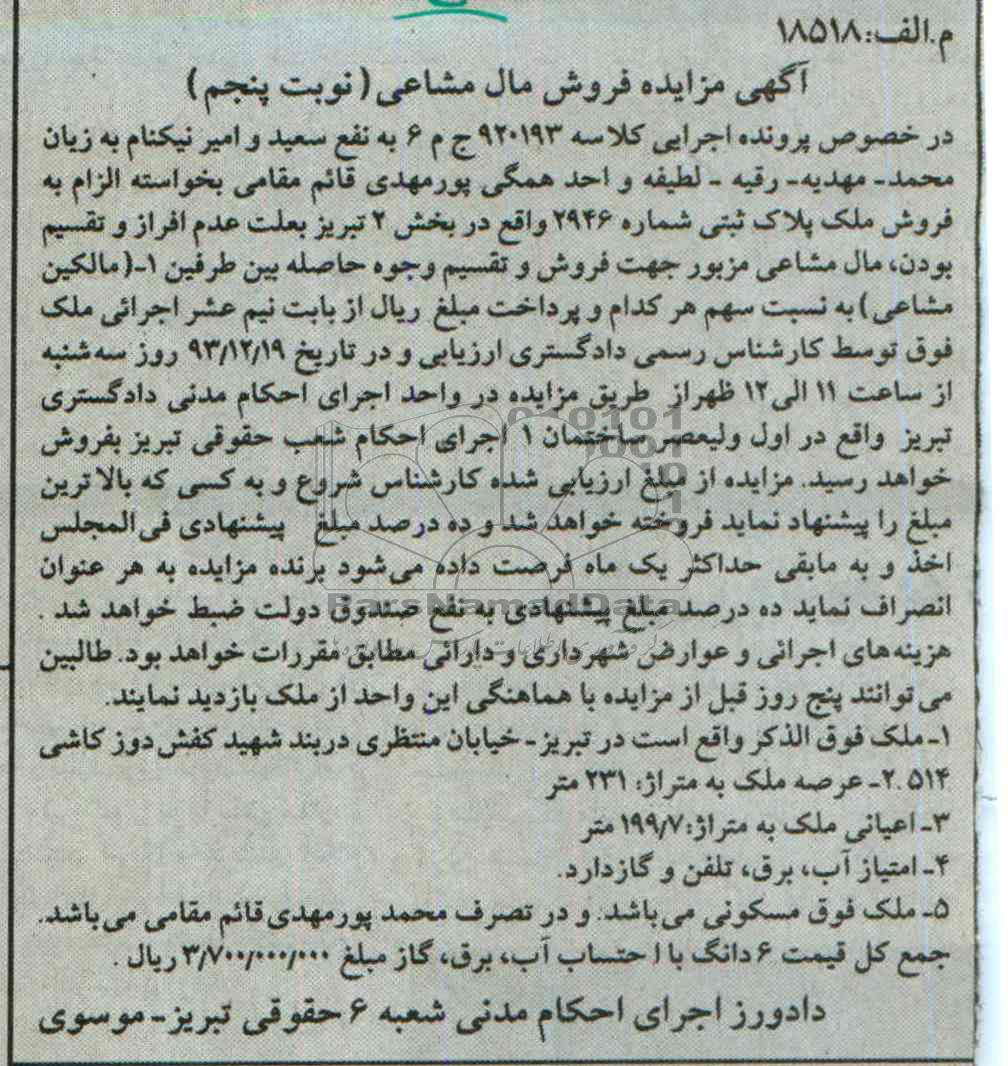 م.الف:۱۸۵۱۸
آگهی مزایده فروش مال مشاعی (نوبت پنجم)
در خصوص پرونده اجرایی کلاسه ۹۲۰۱۹۳ ج م ۶ به نفع سعید و امیر نیکنام به زیان
محمد- مهدیه- رقیه - لطیفه و احد همگی پورمهدی قائم مقامی بخواسته الزام به
فروش ملک پلاک ثبتی شماره ۲۹۴۶ واقع در بخش ۲ تبریز بعلت عدم افراز و تقسیم
بودن، مال مشاعی مزبور جهت فروش و تقسیم وجوه حاصله بین طرفین ۱-(مالکین
مشاعی) به نسبت سهم هر کدام و پرداخت مبلغ ریال از بابت نیم عشر اجرائی ملک
فوق توسط کارشناس رسمی دادگستری ارزیابی و در تاریخ ۹۳/۱۲/۱۹ روز سه شنبه
از ساعت ۱۱ الی ۱۲ ظهر از طریق مزایده در واحد اجرای احکام مدنی دادگستری
تبریز واقع در اول ولیعصر ساختمان ۱ اجرای احکام شعب حقوقی تبریز بفروش
خواهد رسید. مزایده از مبلغ ارزیابی شده کارشناس شروع و به کسی که بالاترین
مبلغ را پیشنهاد نماید فروخته خواهد شد و ده درصد مبلغ پیشنهادی فی المجلس
اخذ و به مابقی حداکثر یک ماه فرصت داده می شود برنده مزایده به هر عنوان
انصراف نماید ده درصد مبلغ پیشنهادی به نفع صندوق دولت ضبط خواهد شد .
هزینه های اجرائی و عوارض شهرداری و دارائی مطابق مقررات خواهد بود. طالبین
می توانند پنج روز قبل از مزایده با هماهنگی این واحد از ملک بازدید نمایند.
۱- ملک فوق الذکر واقع است در تبریز- خیابان منتظری دربند شهید کفش دوز کاشی
۵۱۴ .۲- عرصه ملک به متراژ: ۲۳۱ متر
۳- اعیانی ملک به متراژ: ۱۹۹/۷ متر
۴- امتیاز آب، برق، تلفن و گاز دارد.
۵- ملک فوق مسکونی می باشد. و در تصرف محمد پورمهدی قائم مقامی می باشد.
جمع کل قیمت ۶ دانگ با احتساب آب، برق، گاز مبلغ ۳/۷۰۰/۰۰۰/۰۰۰ ریال .
دادورز اجرای احکام مدنی شعبه ۶ حقوقی تبریز- موسوی
ParsNamadData